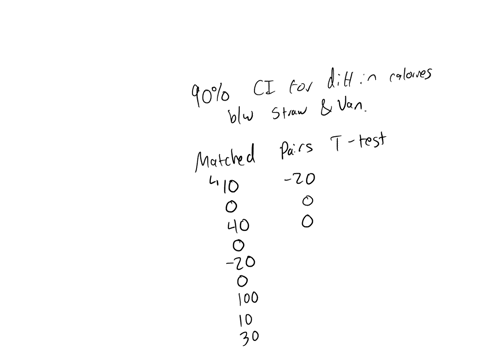 90% CI for diff in calories
b/w Straw & Van.
Matched Pairs T-test
↳ 10 -20
0 0
40 0
0
-20
0
100
10
30